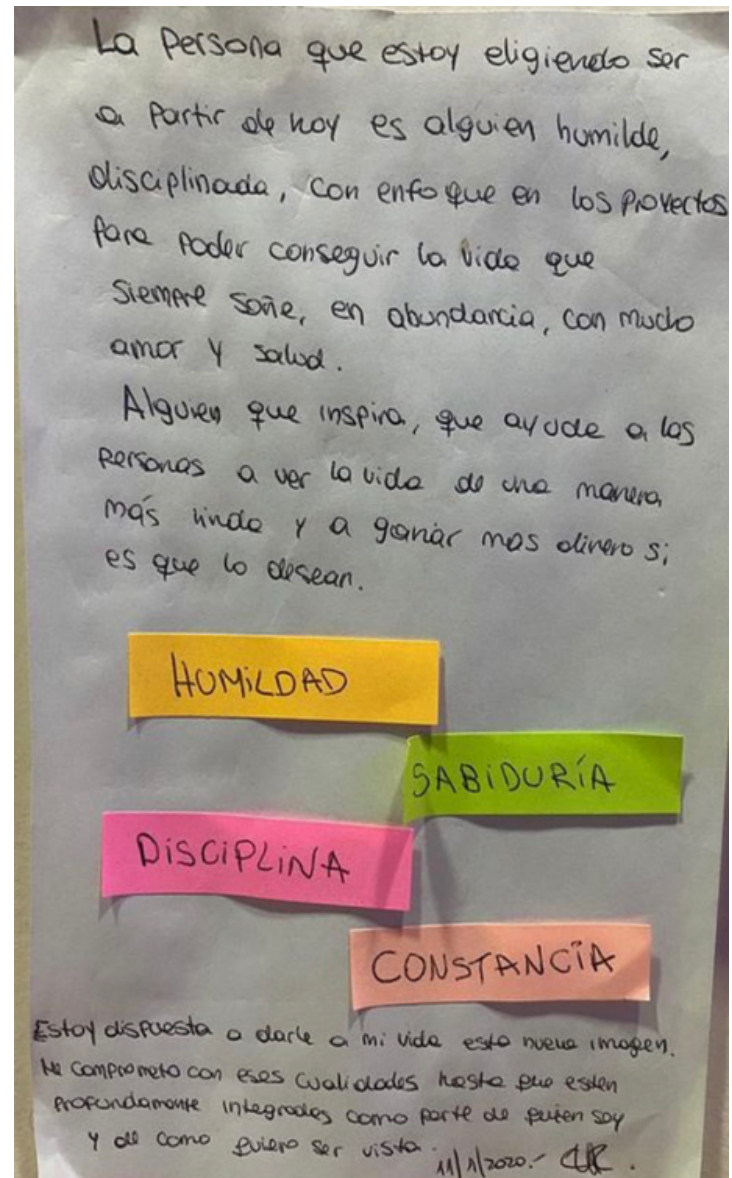 La Persona que estoy eligiendo ser
a partir de hoy es alguien humilde,
disciplinada, con enfoque en los proyectos
para poder conseguir la vida que
siempre soñe, en abundancia, con mucho
amor y salud.
Alguien que inspira, que ayude a las
personas a ver la vida de una manera
más linda y a ganar mas dinero si
es que lo desean.
HUMiLDAD
SABiDURÍA
DiSCiPLiNA
CONSTANCiA
Estoy dispuesta a darle a mi vida esta nueva imagen.
Me comprometo con esas cualidades hasta que esten
profundamente integradas como parte de quien soy
y de como quiero ser vista.
11/1/2020.-